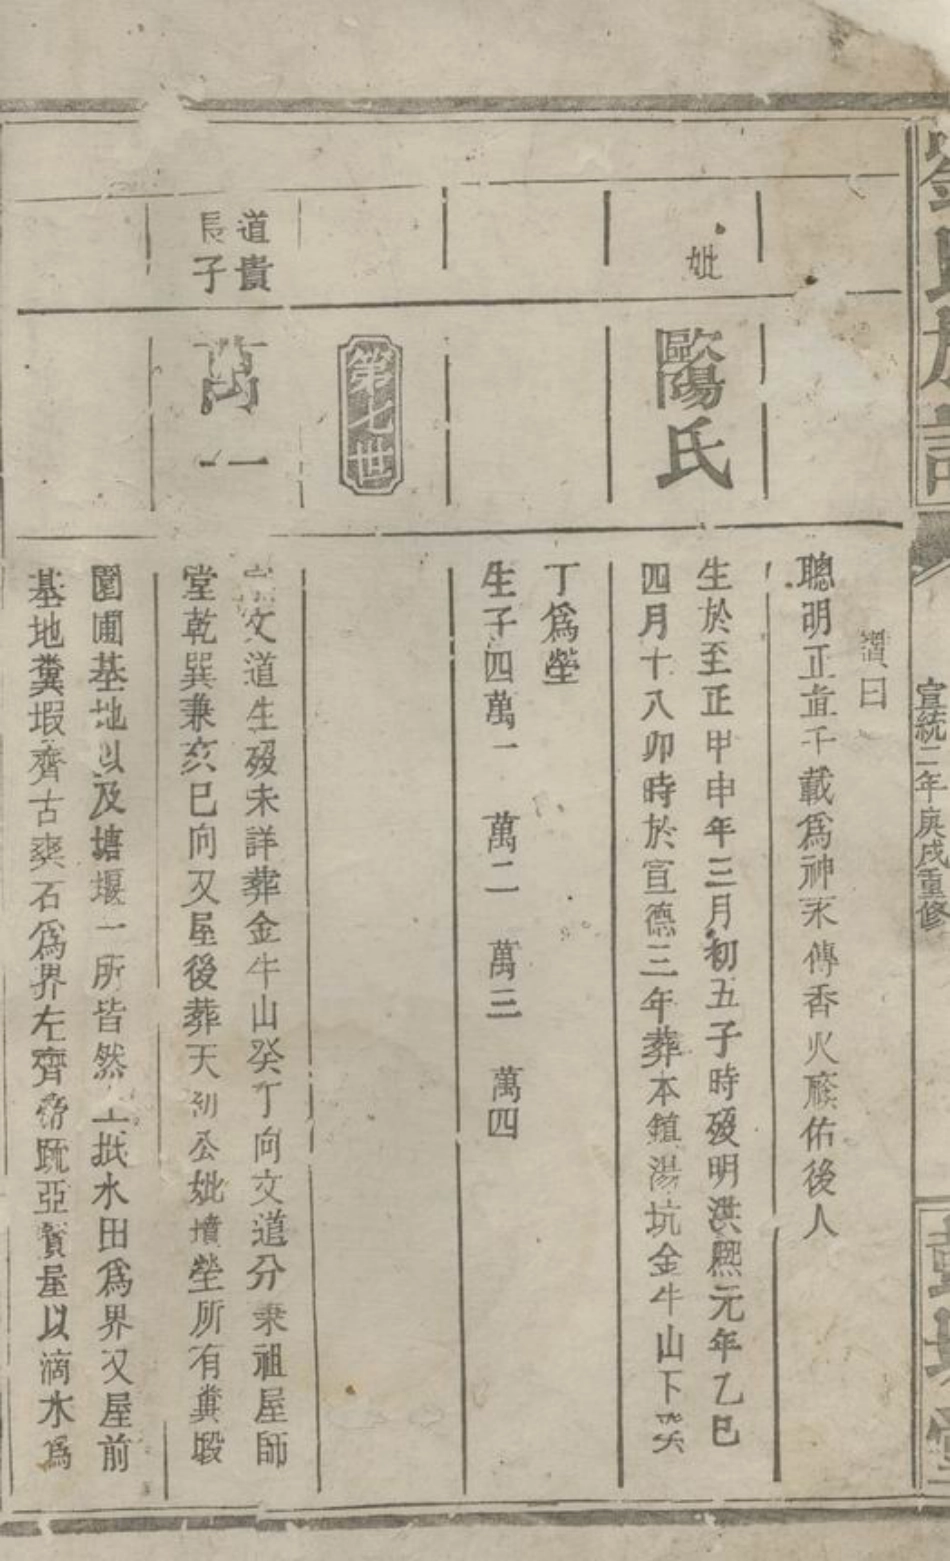 劉氏族譜
宣統二年庚戌重修
讚曰
聰明正直千載爲神禾傳香火廕佑後人
妣
歐陽氏
生於至正甲申年三月初五子時歿明洪熙元年乙巳
四月十八卯時於宣德三年葬本鎮湯坑金牛山下癸
丁爲塋
生子四萬一 萬二 萬三 萬四
第七世
道貴
長子
萬一
文道生歿未詳葬金牛山癸丁向文道分秉祖屋師
堂乾巽兼亥巳向又屋後葬天初公妣墳塋所有糞塅
園圃基地以及塘堰一所皆然上抵水田爲界又屋前
基地糞塅齊古爽石爲界左齊帝亞賓屋以滴水爲